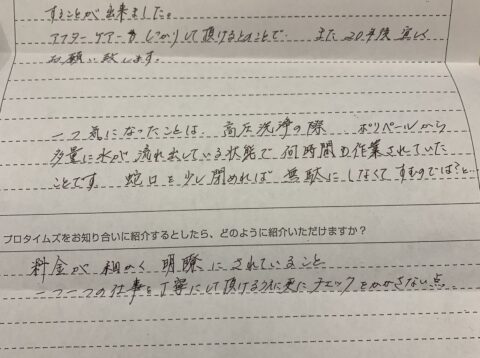 することが出来ました。
アフターケアーもしっかりして頂けるとのことで、また20年後宜しく
お願い致します。
一つ気になったことは、高圧洗浄の際 ポリペールから
多量に水が流れ出している状態で何時間も作業されていた
ことです 蛇口を少し閉めれば無駄にしなくてすむのでは?と…
プロタイムズをお知り合いに紹介するとしたら、どのように紹介いただけますか?
料金が細かく明瞭にされていること
一つ一つの仕事を丁寧にして頂ける 更にチェックをかかさない点